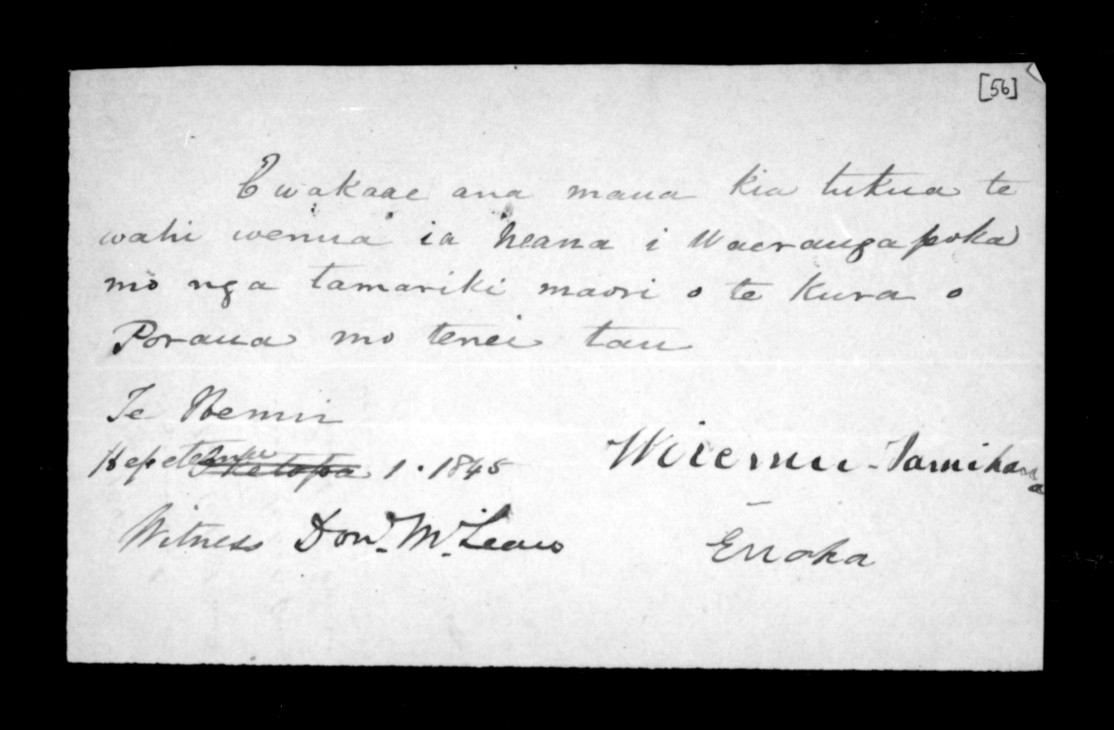 [56]
E wakaae ana maua kia tukua te
wahi wenua ia Heana i Waerangapoka
mo nga tamariki maori o te Kura o
Poraua mo tenei tau
Te Hemu
Hepetema 1. 1845
Wiremu Tamihana
Witness Don. McLean
Enoka